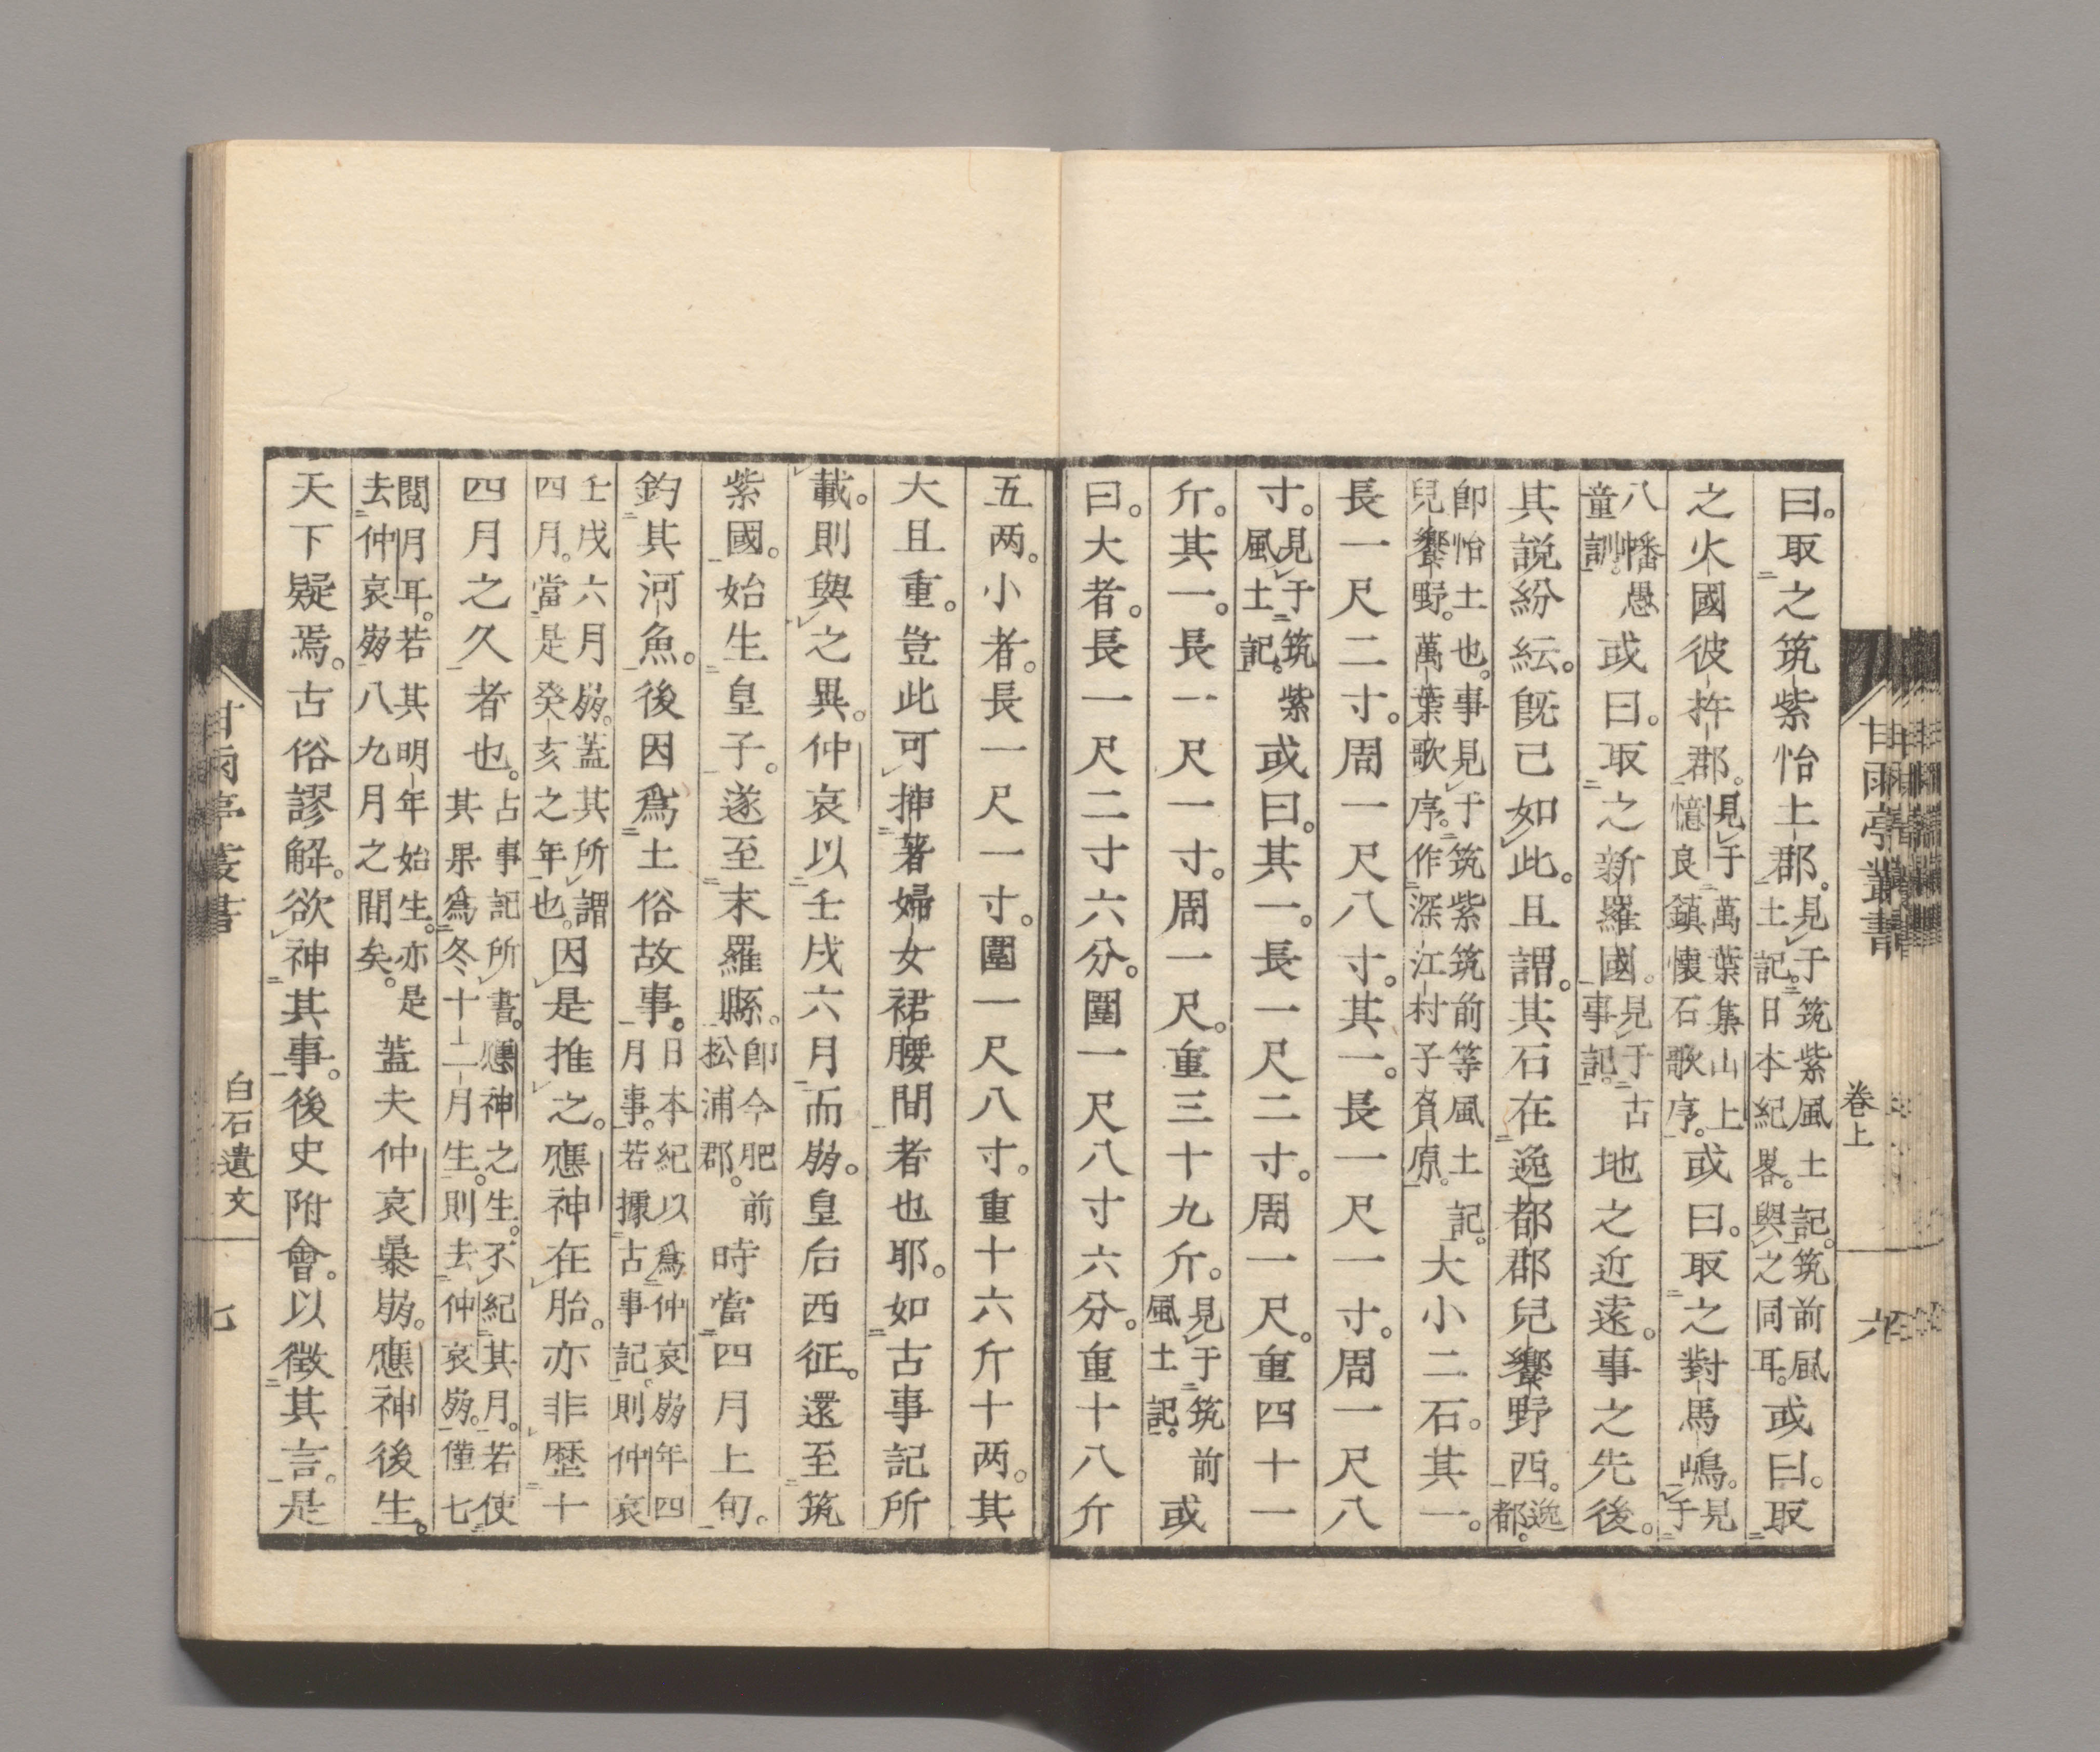 甘雨亭叢書 卷上 六
曰。取之筑紫怡土郡。見于筑紫風土記。筑前風土記。日本紀畧。與之同耳。或曰。取
之火國彼杵郡。見于萬葉集山上憶良鎮懷石歌序。或曰。取之對馬嶋。見于
八幡愚童訓。或曰。取之新羅國。見于古事記。地之近遠。事之先後。
其說紛紜。既已如此。且謂。其石在逸都郡兒饗野西。逸都。
即怡土也。事見于筑紫筑前等風土記。兒饗野。萬葉歌序。作深江村子負原。大小二石。其一。
長一尺二寸。周一尺八寸。其一。長一尺一寸。周一尺八
寸。見于筑紫風土記。或曰。其一。長一尺二寸。周一尺。重四十一
斤。其一。長一尺一寸。周一尺。重三十九斤。見于筑前風土記。或
曰。大者。長一尺二寸六分。圍一尺八寸六分。重十八斤
五两。小者。長一尺一寸。圍一尺八寸。重十六斤十两。其
大且重。豈此可挿著婦女裙腰間者也耶。如古事記所
載。則與之異。仲哀以壬戌六月而崩。皇后西征。還至筑
紫國。始生皇子。遂至末羅縣。即今肥前松浦郡。時當四月上旬。
釣其河魚。後因爲土俗故事。日本紀以爲仲哀崩年四月事。若據古事記。則仲哀
壬戌六月崩。蓋其所謂四月。當是癸亥之年也。因是推之。應神在胎。亦非歴十
四月之久者也。古事記所書。應神之生。不紀其月。若使其果爲冬十二月生。則去仲哀崩。僅七
閲月耳。若其明年始生。亦是去仲哀崩八九月之間矣。蓋夫仲哀暴崩。應神後生。
天下疑焉。古俗謬解。欲神其事。後史附會。以徵其言。是
甘雨亭叢書 白石遺文 七